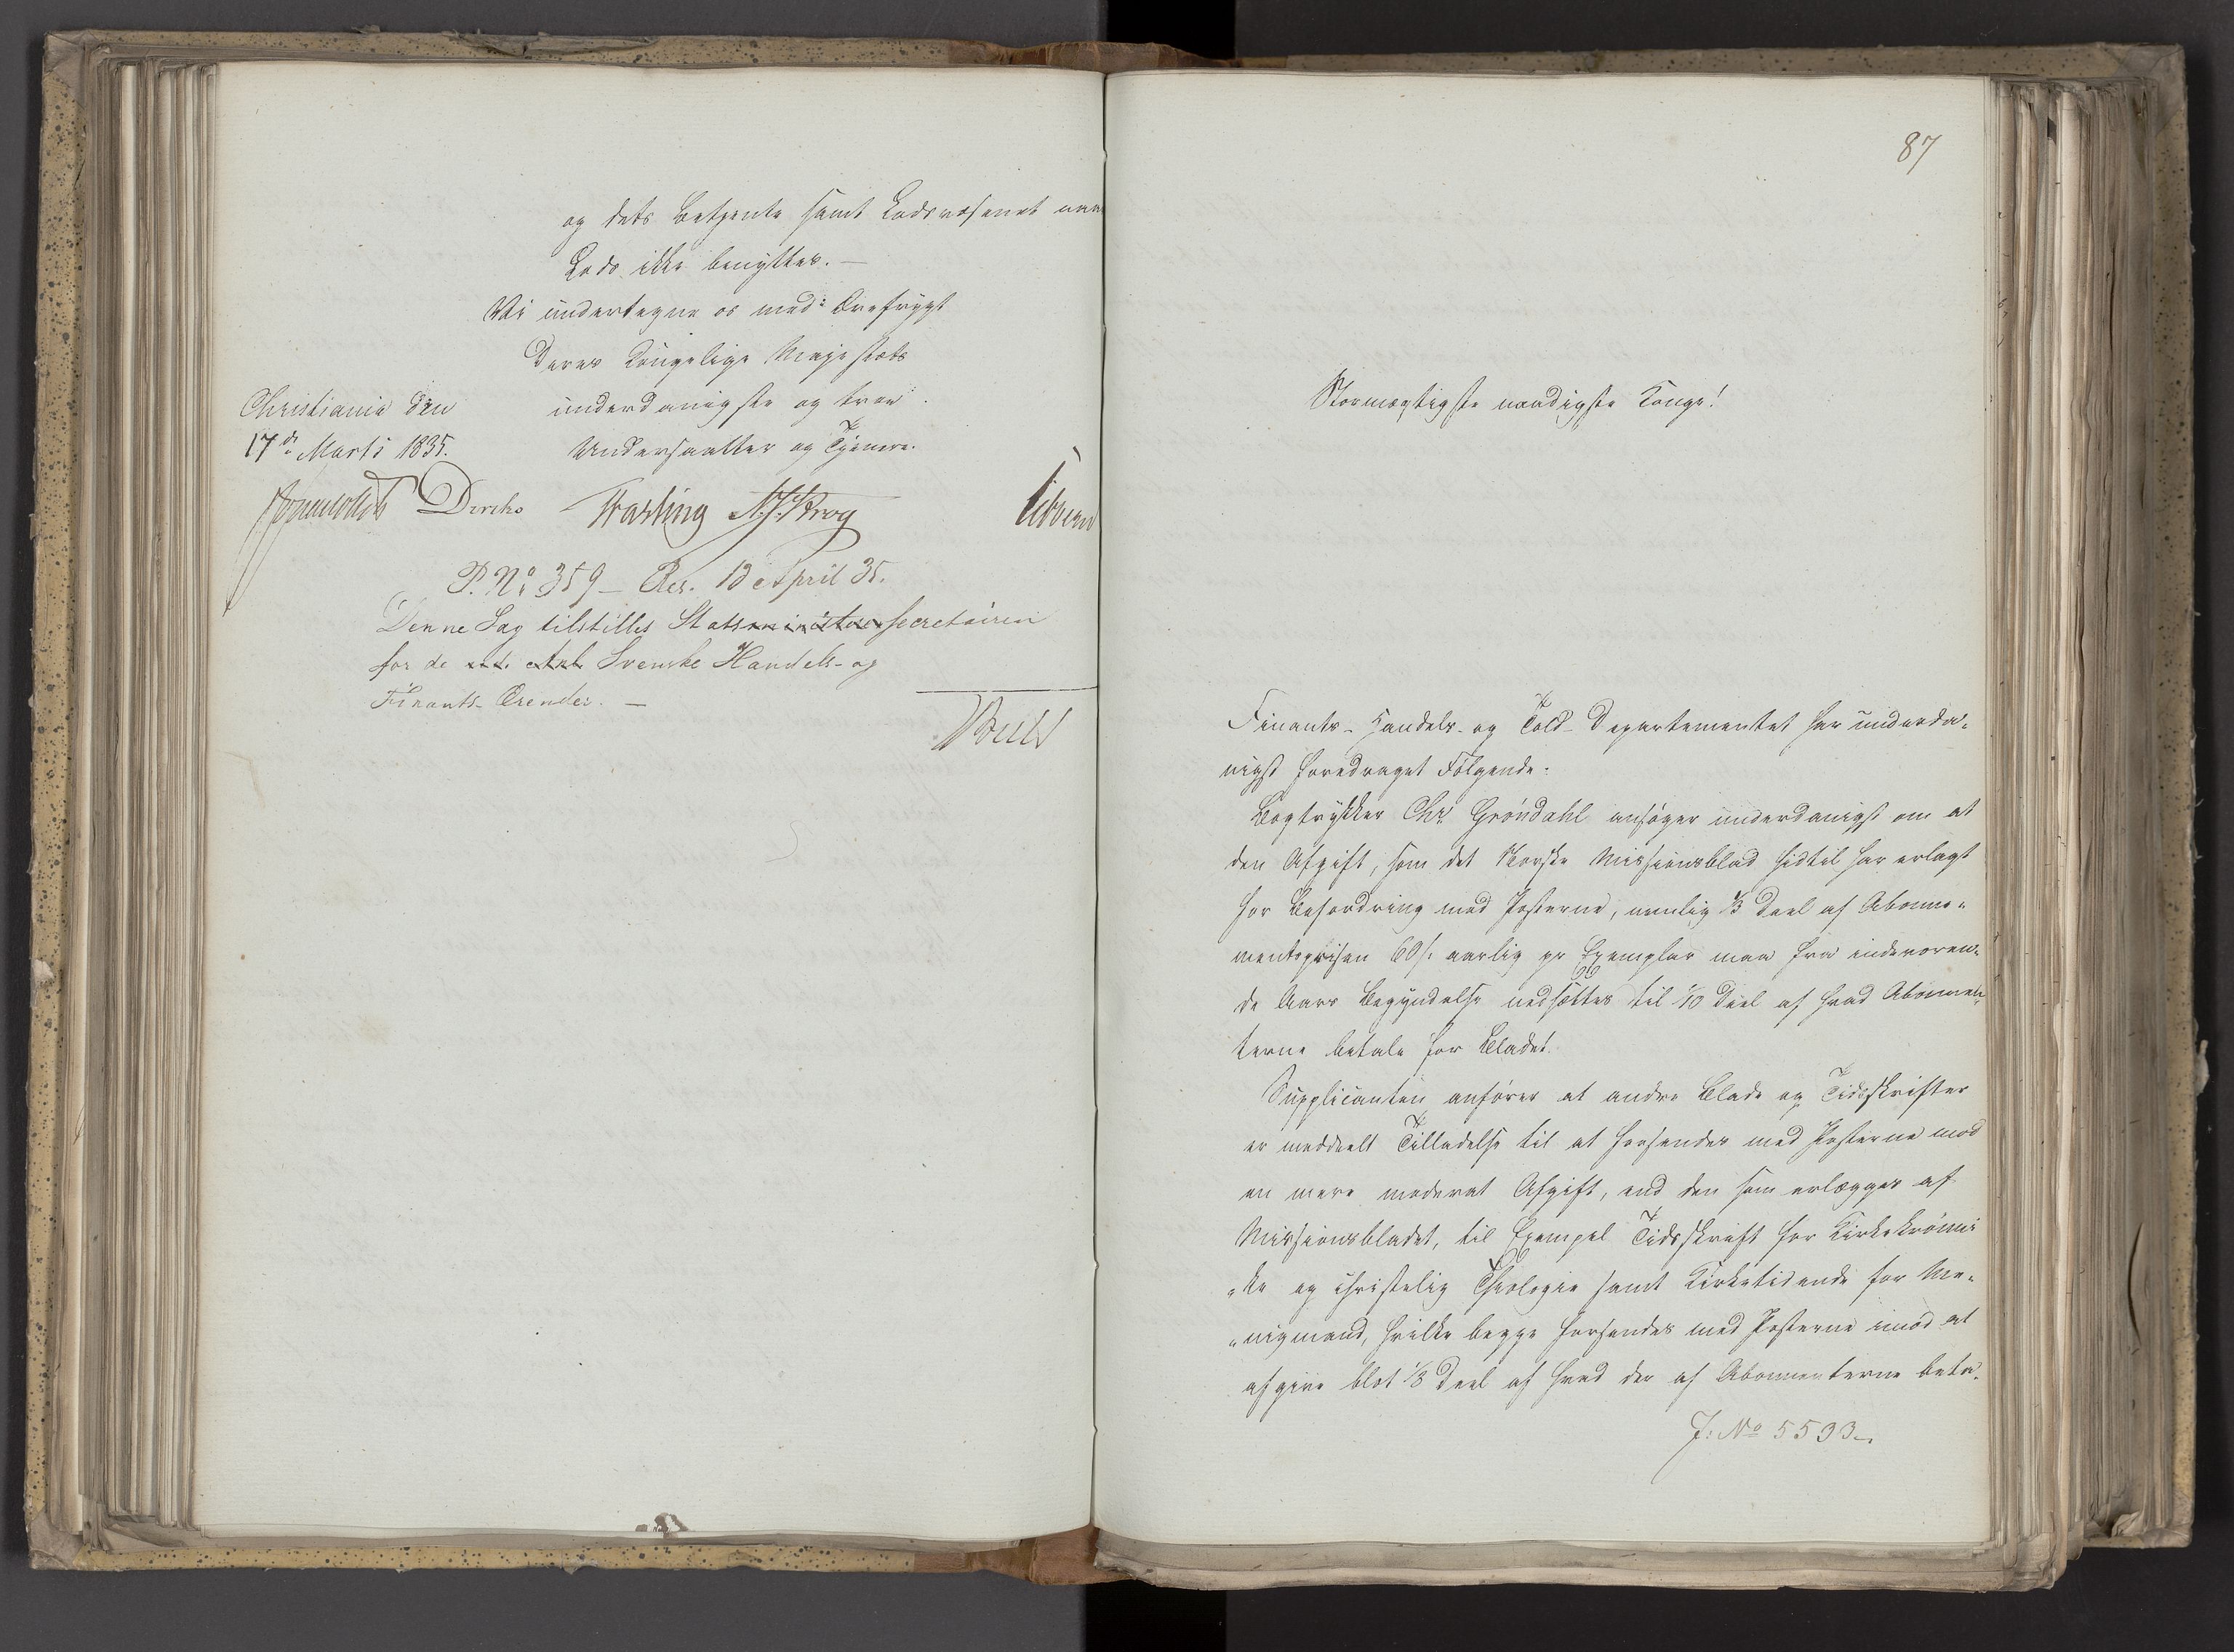 og dets Betjente samt Lodsvæsenet naar
Lods ikke benyttes. —
Vi undertegne os med Ærefrygt
Deres Kongelige Majestæts
underdanigste og troe
Undersaatter og Tjenere.
Christiania den
17de Marts 1835.
Diriks Fasting N. J. Krog
P. No 359 — Res. 13 April 35.
Denne Sag tilstilles Statsminister secretairen
for de Svenske Handels- og
Finants-Ærender. —
87
Stormægtigste naadigste Konge!
Finants- Handels- og Told-Departementet har underda-
nigst foredraget Følgende:
Bogtrykker Chr. Grøndahl ansøger underdanigst om at
den Afgift, som det Norske Missionsblad hidtil har erlagt
for Befordring med Posterne, nemlig 1/3 Deel af Abonne-
mentsprisen 60 s. aarlig pr Exemplar maa fra indeværen-
de Aars Begyndelse nedsættes til 1/10 Deel af hvad Abonnen-
terne betale for Bladet.
Supplicanten anfører at andre Blade og Tidsskrifter
er meddeelt Tilladelse til at forsendes med Posterne mod
en mere moderat Afgift, end den som erlægges af
Missionsbladet, til Exempel Tidsskrift for Kirkekrøni
-ke og christelig Theologie samt Kirketidende for Me-
-nigmand, hvilke begge forsendes med Posterne imod at
afgive blot 1/8 Deel af hvad der af Abonnenterne beta-
J: No 5533